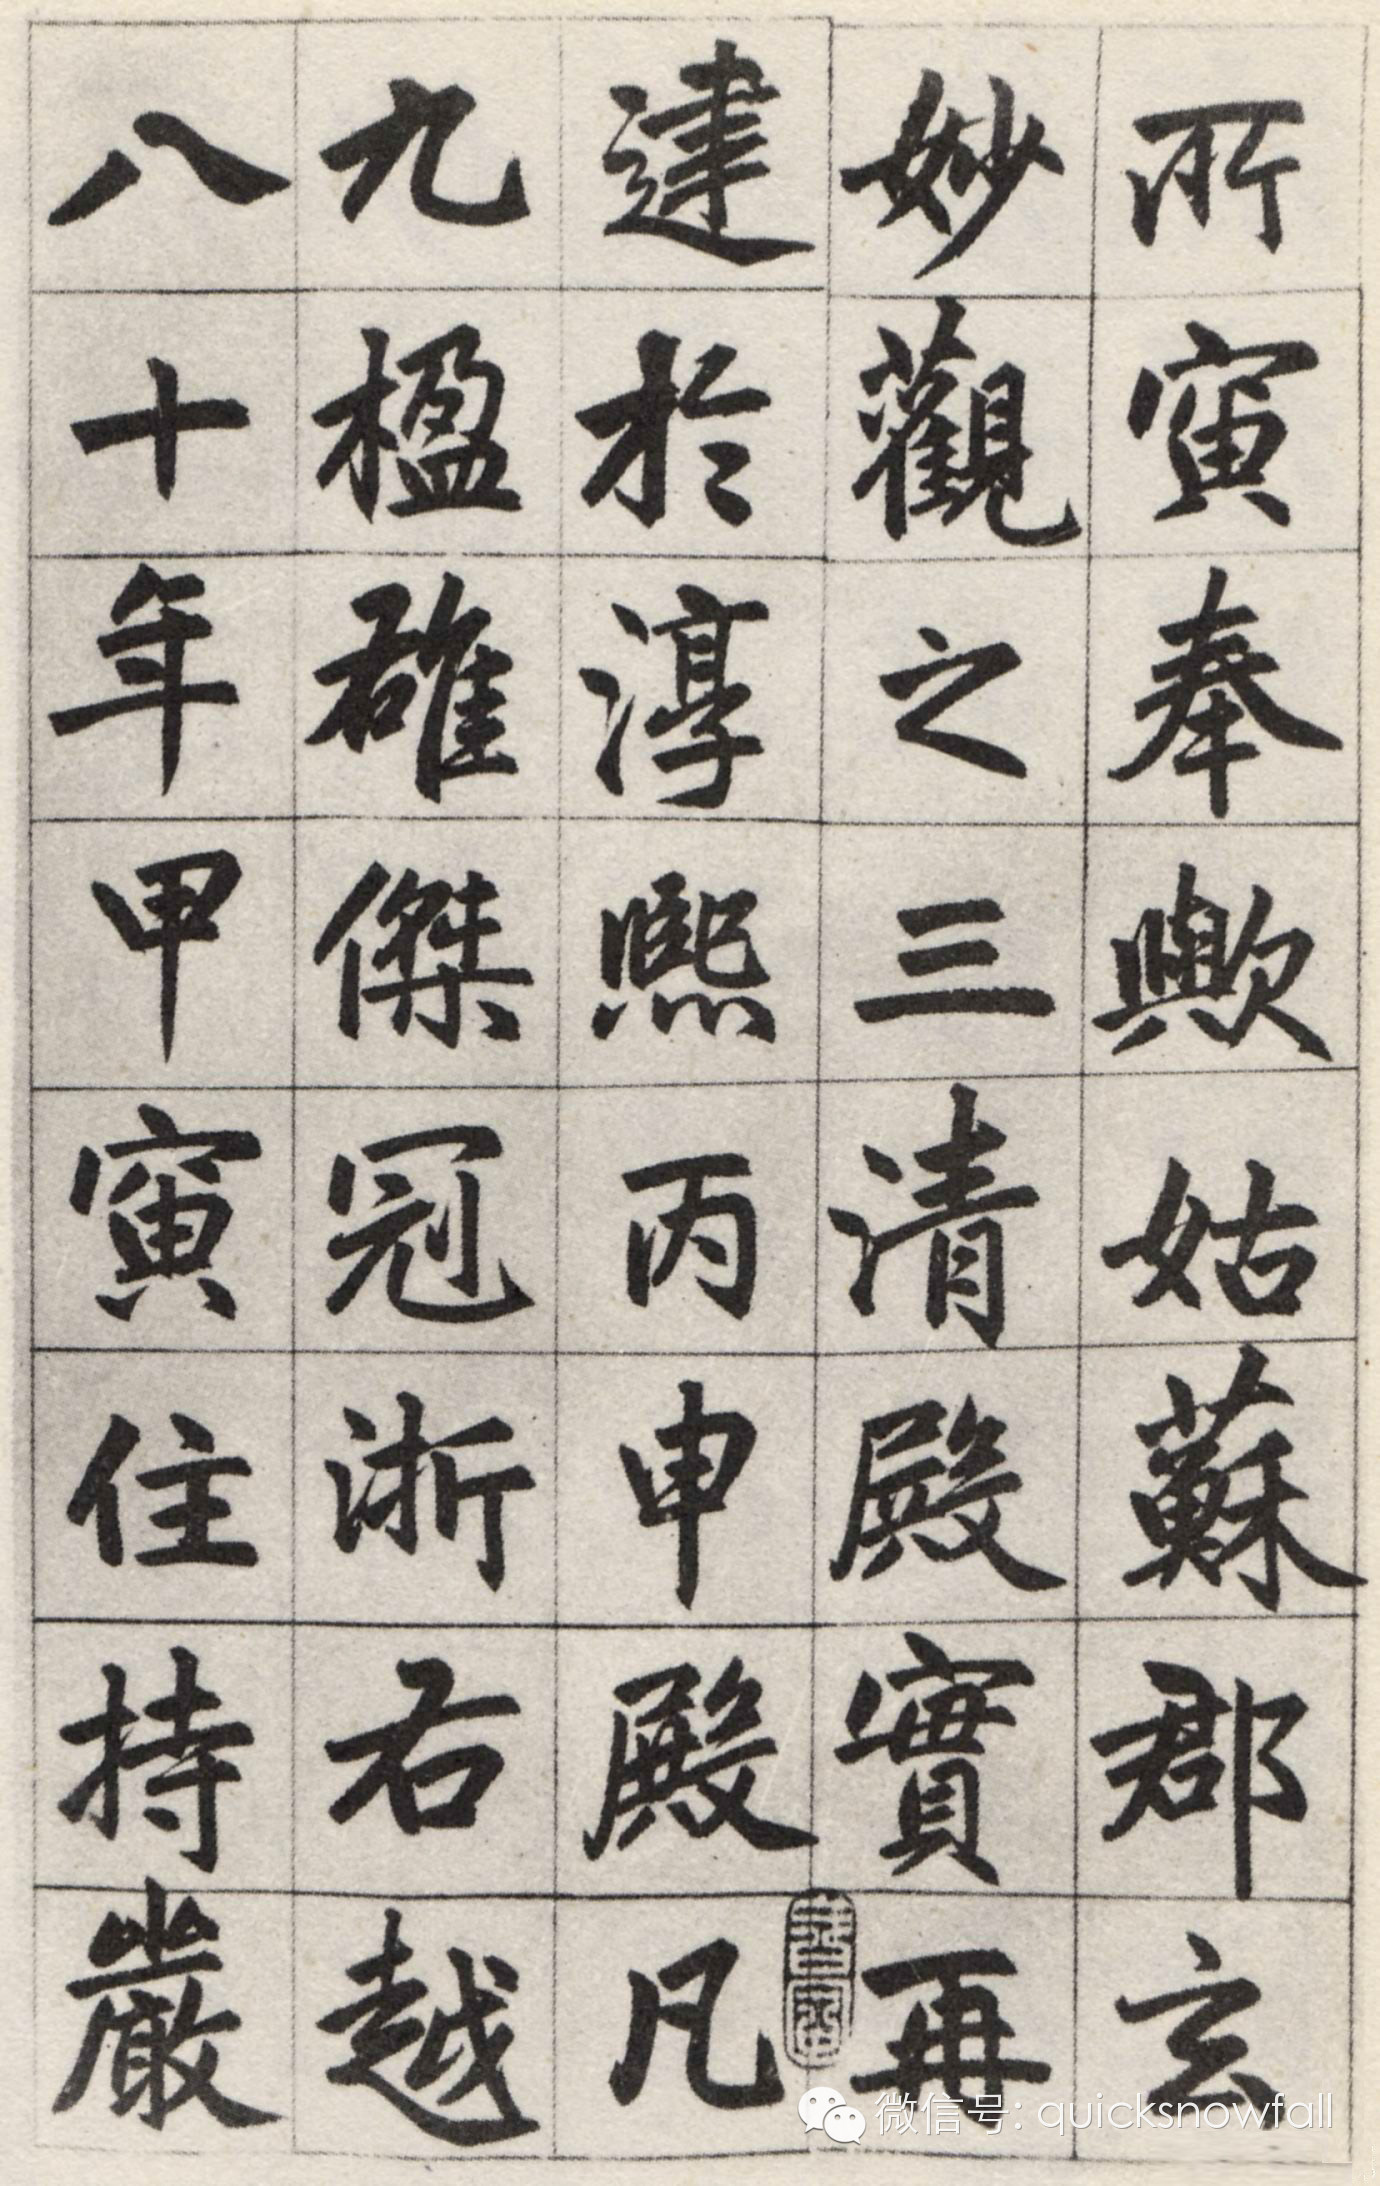 所寅奉歟姑蘇郡玄
妙觀之三清殿實再
建於淳熙丙申殿凡
九楹雄傑冠浙右越
八十年甲寅住持嚴
微信号: quicksnowfall